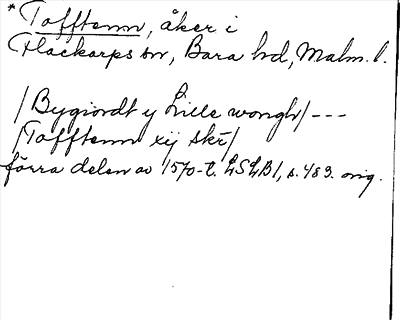 *Tofftenn, åker i
Flackarps sn, Bara hd, Malm. l.
/Bygiordt y Lille wongh/---
/Tofftenn xij skr/
förra delen av 1570-t. LSLB1, s. 483. orig.